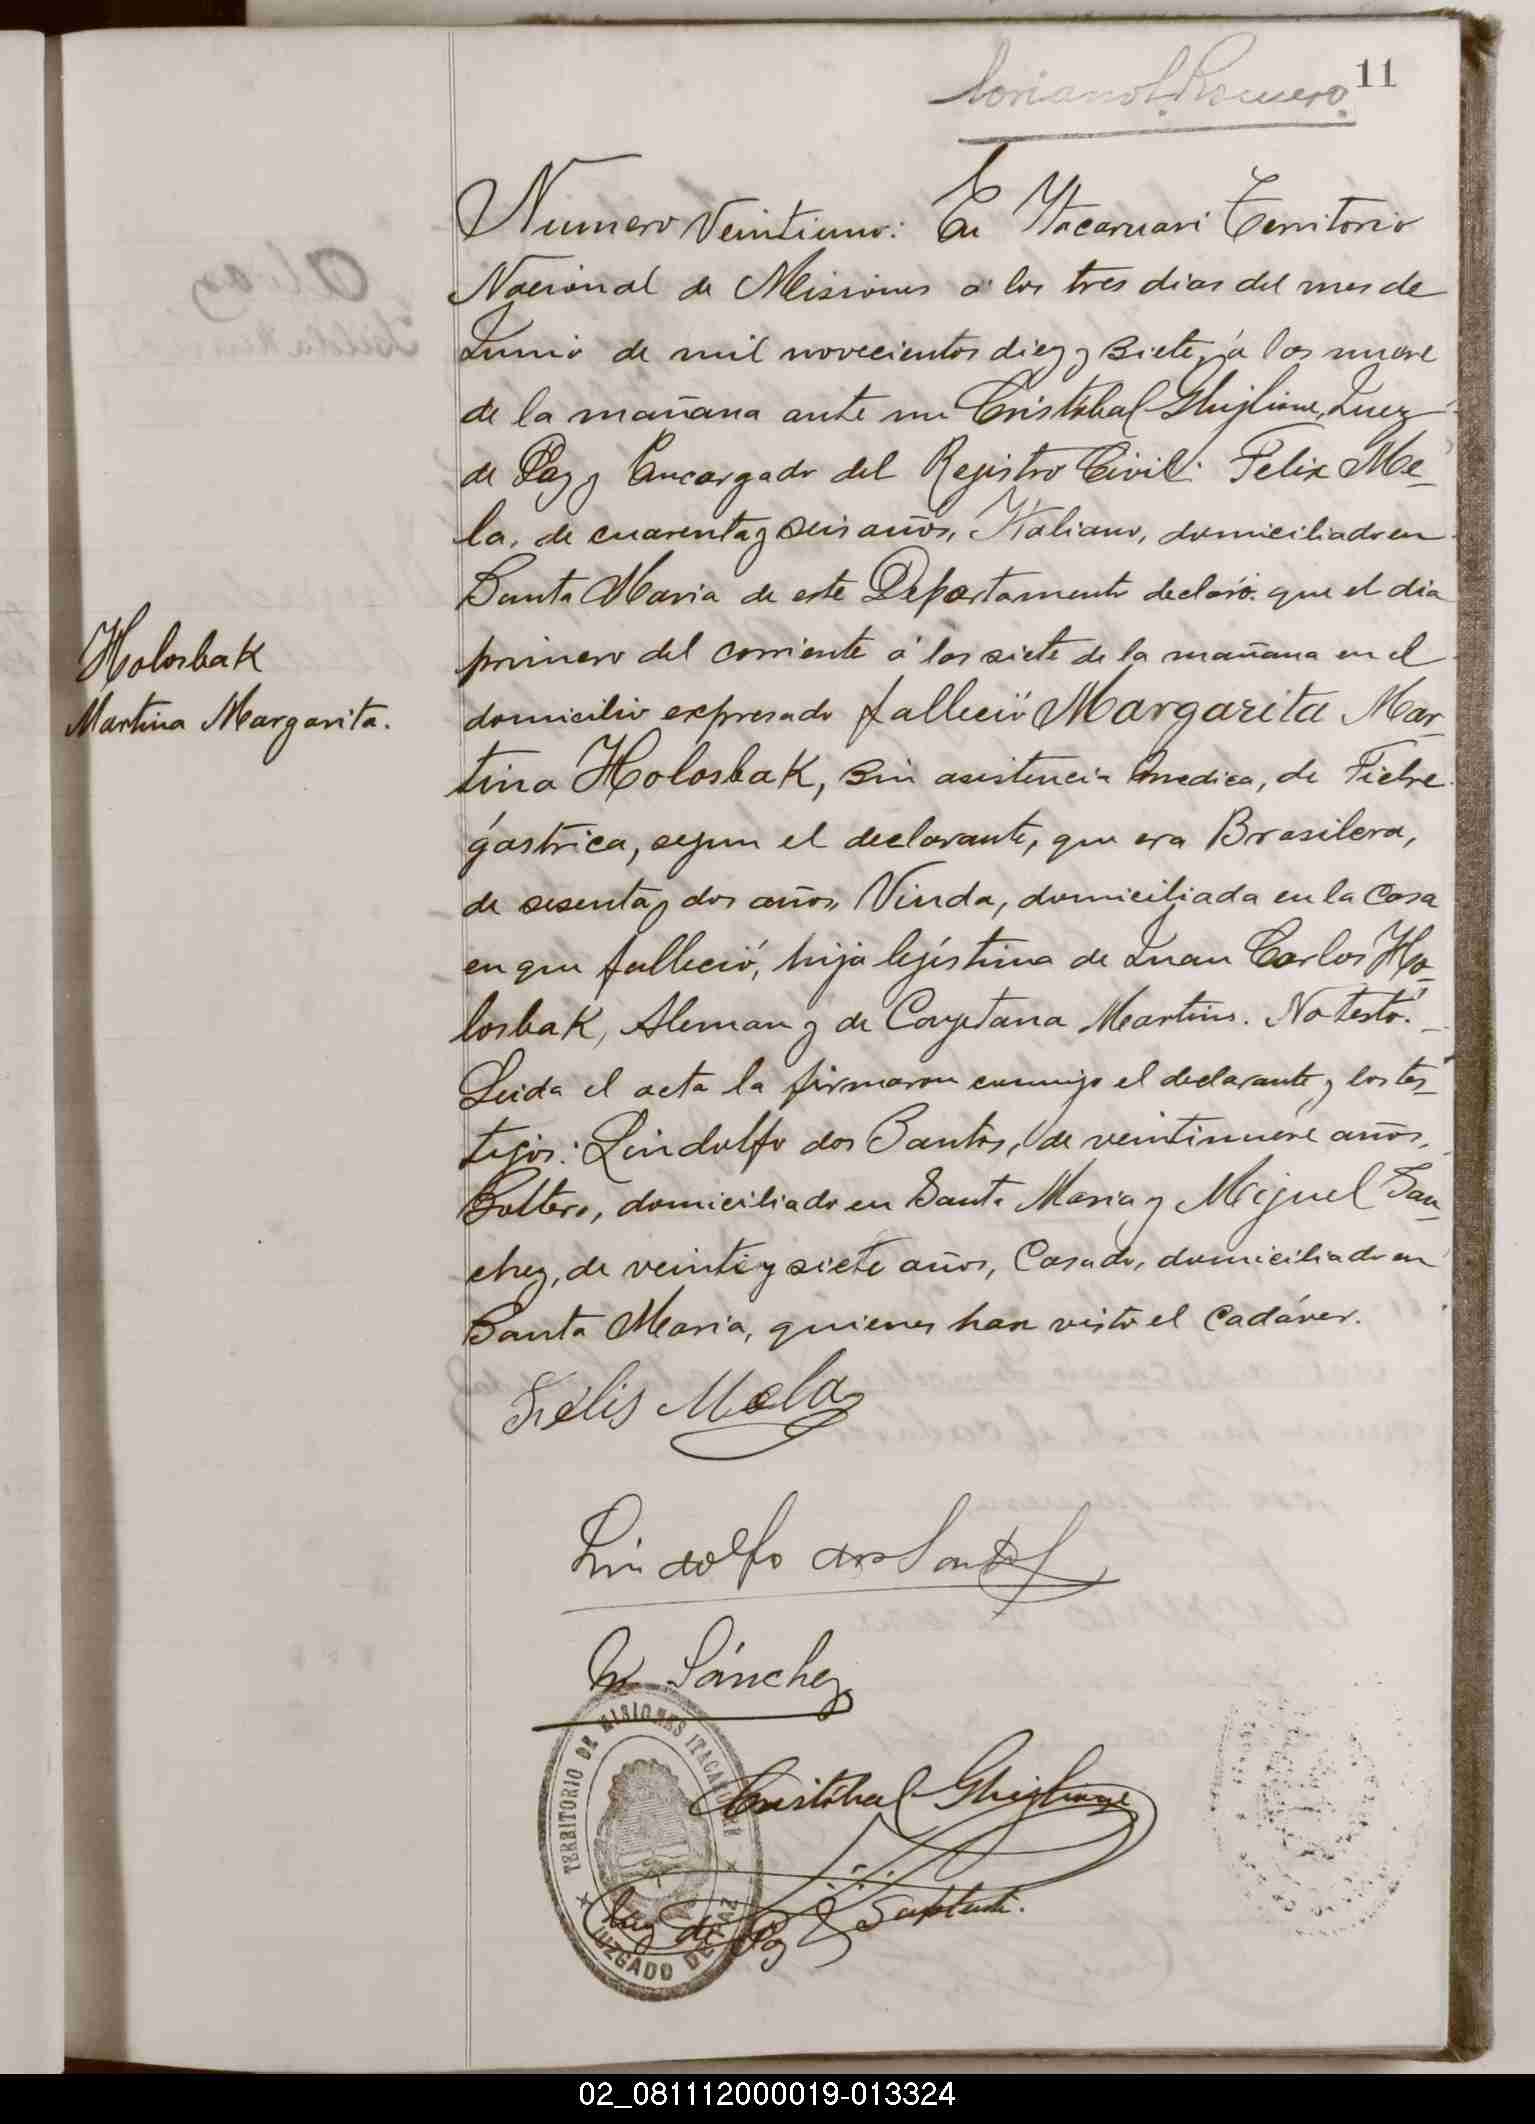 11
Romero
Numero Veintiuno: En Ytacaruari Territorio
Nacional de Misiones á los tres dias del mes de
Junio de mil novecientos diez y siete, á las nueve
de la mañana ante mi Cristóbal Ghiglione, Juez
de Paz y Encargado del Registro Civil: Felix Me-
la, de cuarenta y seis años, Italiano, domiciliado en
Santa Maria de este Departamento declaró: que el dia
primero del corriente á las siete de la mañana en el
Holosbak
Martina Margarita.
domicilio expresado falleció Margarita Mar-
tina Holosbak, sin asistencia medica, de Fiebre
gástrica, segun el declarante, que era Brasilera,
de sesenta y dos años, Viuda, domiciliada en la Casa
en que falleció, hija legistima de Juan Carlos Ho-
losbak, Aleman y de Cayetana Martins. No testó.
Leida el acta la firmaron conmigo el declarante y los tes-
tigos: Lindolfo dos Santos, de veintinueve años,
Soltero, domiciliado en Santa Maria y Miguel San-
chez, de veinte y siete años, Casado, domiciliado en
Santa Maria, quienes han visto el Cadáver.
Felis Mela
Lindolfo dos Santos
M. Sánchez
TERRITORIO DE MISIONES ITACARUARE
JUZGADO DE PAZ
Cristóbal Ghiglione
Juez de Paz Suplente.
02_081112000019-013324